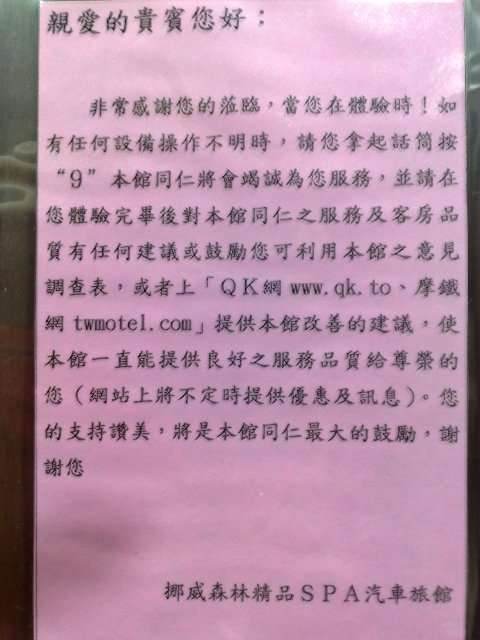 親愛的貴賓您好；
非常感謝您的蒞臨，當您在體驗時！如
有任何設備操作不明時，請您拿起話筒按
“9”本館同仁將會竭誠為您服務，並請在
您體驗完畢後對本館同仁之服務及客房品
質有任何建議或鼓勵您可利用本館之意見
調查表，或者上「ＱＫ網 www.qk.to、摩鐵
網 twmotel.com」提供本館改善的建議，使
本館一直能提供良好之服務品質給尊榮的
您（網站上將不定時提供優惠及訊息）。您
的支持讚美，將是本館同仁最大的鼓勵，謝
謝您
挪威森林精品ＳＰＡ汽車旅館